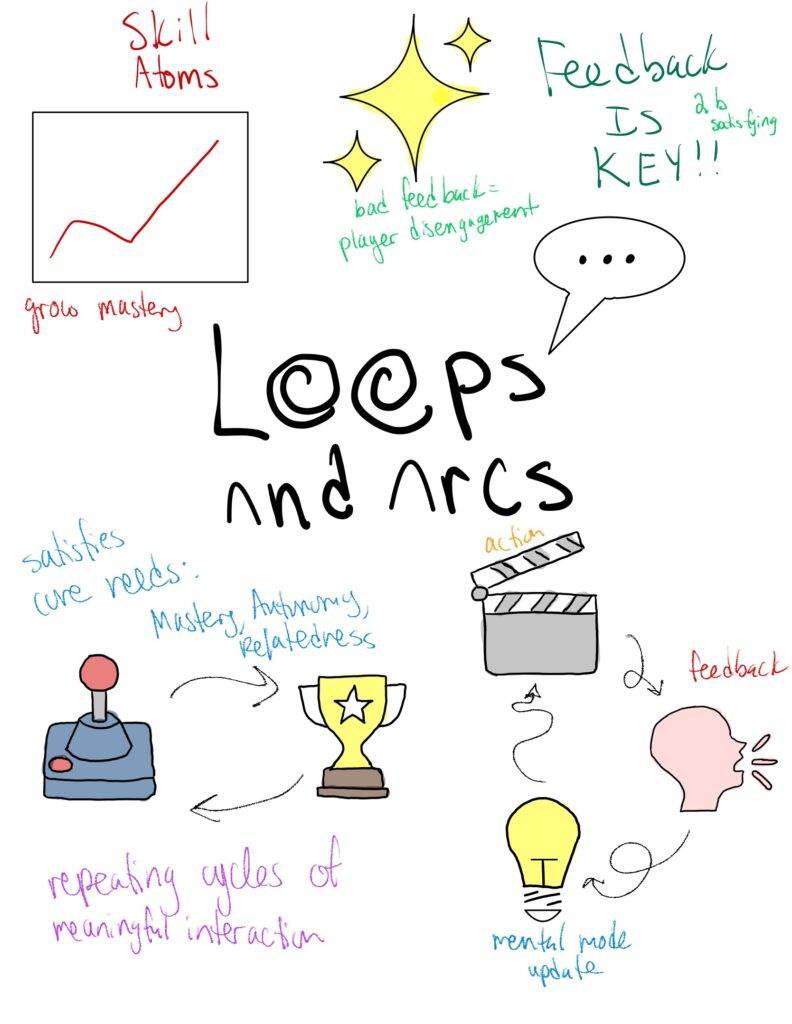 Skill
Atoms
grow mastery
bad feedback =
player disengagement
Feedback
Is
KEY!!
2 b
satisfying
Loops
And Arcs
satisfies
core needs:
Mastery, Autonomy,
Relatedness
repeating cycles of
meaningful interaction
action
feedback
mental mode
update